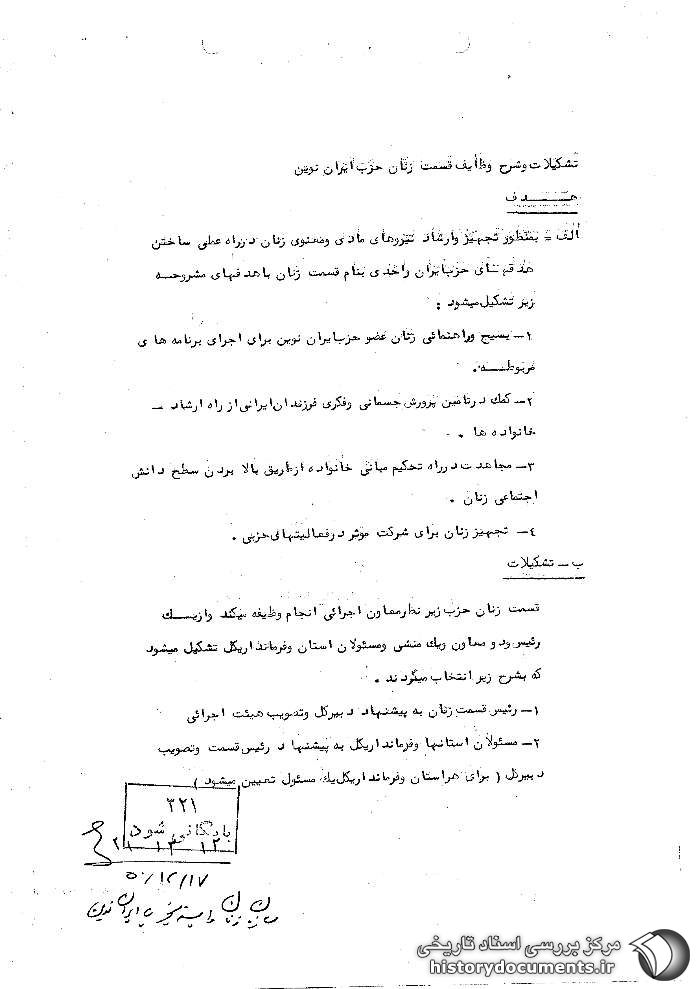 تشکیلات وشرح وظایف قسمت زنان حزب ایران نوین
هدف
الف = بمنظور تجهیز وارشاد نیروهای مادی ومعنوی زنان درراه عملی ساختن
هدفهای حزب ایران واحدی بنام قسمت زنان باهدفهای مشروحه
زیر تشکیل میشود :
۱ـ بسیج وراهنمائی زنان عضو حزب ایران نوین برای اجرای برنامه های
مربوطه.
۲ـ کمک درتامین پرورش جسمانی وفکری فرزندان ایرانی از راه ارشاد ـ
خانواده ها .
۳ـ مجاهدت درراه تحکیم مبانی خانواده ازطریق بالا بردن سطح دانش
اجتماعی زنان .
٤ـ تجهیز زنان برای شرکت موثر درفعالیتهای حزبی .
ب ـ تشکیلات
قسمت زنان حزب زیر نظرمعاون اجرائی انجام وظیفه میکند وازیک
رئیس ودو معاون ویک منشی ومسئولان استان وفرمانداریکل تشکیل میشود
که بشرح زیر انتخاب میگردند .
۱ـ رئیس قسمت زنان به پیشنهاد دبیرکل وتصویب هیئت اجرائی
۲ـ مسئولان استانها وفرمانداریکل به پیشنهاد رئیس قسمت وتصویب
دبیرکل ( برای هراستان وفرمانداریکل یک مسئول تعیین میشود )
۳۲۱
بایگانی شود
۵۰/۱۲/۱۷
سازمان زنان وابسته بحزب ایران نوین
مرکز بررسی اسناد تاریخی
historydocuments.ir